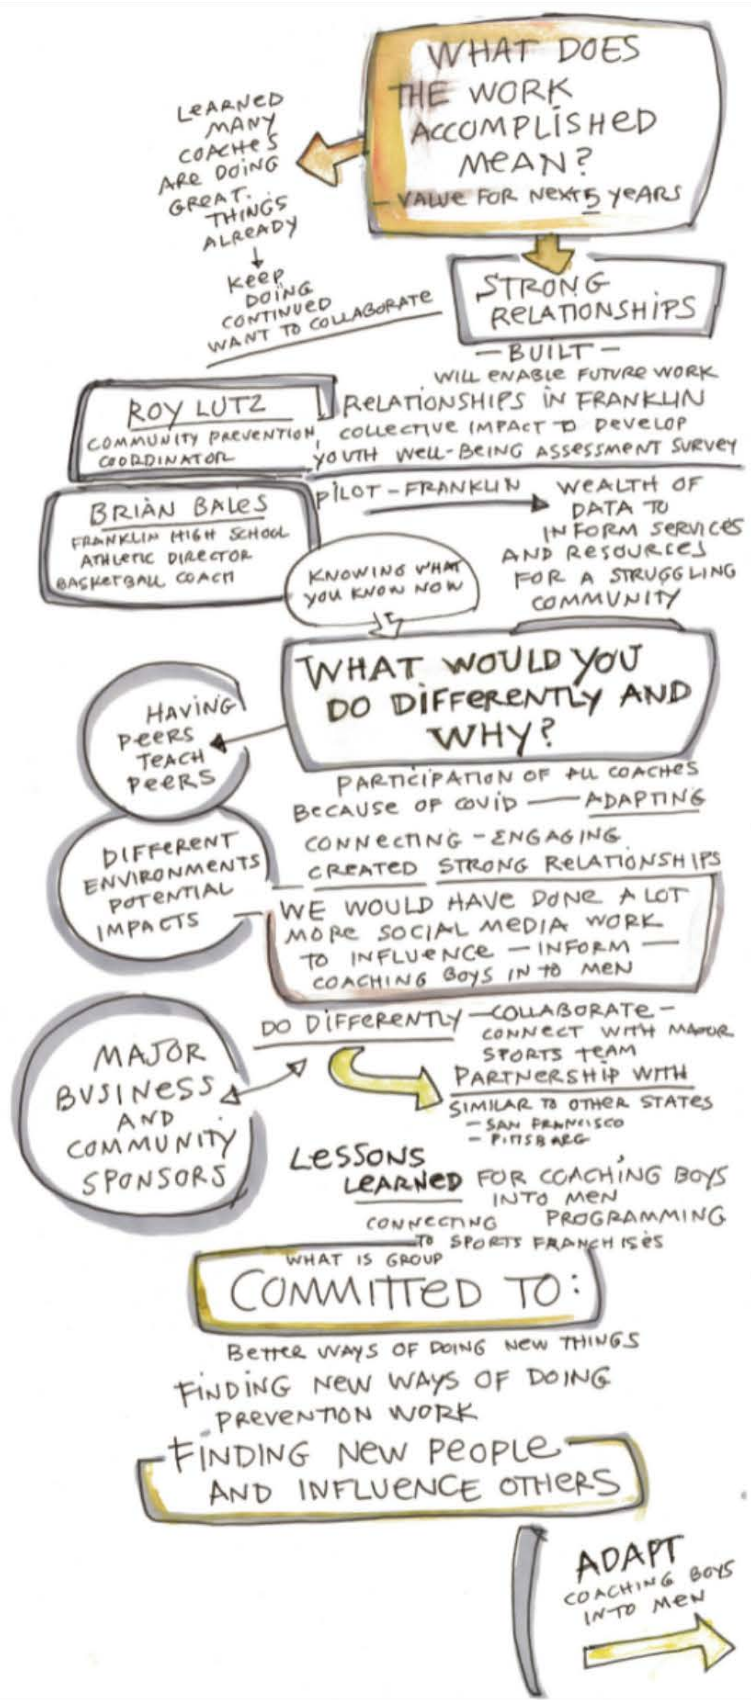 WHAT DOES
THE WORK
ACCOMPLISHED
MEAN?
- VALUE FOR NEXT 5 YEARS
LEARNED
MANY
COACHES
ARE DOING
GREAT
THINGS
ALREADY
KEEP
DOING
CONTINUED
WANT TO COLLABORATE
STRONG
RELATIONSHIPS
- BUILT -
WILL ENABLE FUTURE WORK
ROY LUTZ
COMMUNITY PREVENTION
COORDINATOR
RELATIONSHIPS IN FRANKLIN
COLLECTIVE IMPACT TO DEVELOP
YOUTH WELL-BEING ASSESSMENT SURVEY
BRIAN BALES
FRANKLIN HIGH SCHOOL
ATHLETIC DIRECTOR
BASKETBALL COACH
PILOT - FRANKLIN
WEALTH OF
DATA TO
INFORM SERVICES
AND RESOURCES
FOR A STRUGGLING
COMMUNITY
KNOWING WHAT
YOU KNOW NOW
WHAT WOULD YOU
DO DIFFERENTLY AND
WHY?
HAVING
PEERS
TEACH
PEERS
PARTICIPATION OF ALL COACHES
BECAUSE OF COVID — ADAPTING
DIFFERENT
ENVIRONMENTS
POTENTIAL
IMPACTS
CONNECTING - ENGAGING
CREATED STRONG RELATIONSHIPS
WE WOULD HAVE DONE A LOT
MORE SOCIAL MEDIA WORK
TO INFLUENCE - INFORM -
COACHING BOYS IN TO MEN
DO DIFFERENTLY - COLLABORATE -
CONNECT WITH MAJOR
SPORTS TEAM
PARTNERSHIP WITH
SIMILAR TO OTHER STATES
- SAN FRANCISCO
- PITTSBARG
MAJOR
BUSINESS
AND
COMMUNITY
SPONSORS
LESSONS
LEARNED FOR COACHING BOYS
INTO MEN
CONNECTING PROGRAMMING
TO SPORTS FRANCHISES
WHAT IS GROUP
COMMITTED TO:
BETTER WAYS OF DOING NEW THINGS
FINDING NEW WAYS OF DOING
PREVENTION WORK
FINDING NEW PEOPLE
AND INFLUENCE OTHERS
ADAPT
COACHING BOYS
INTO MEN